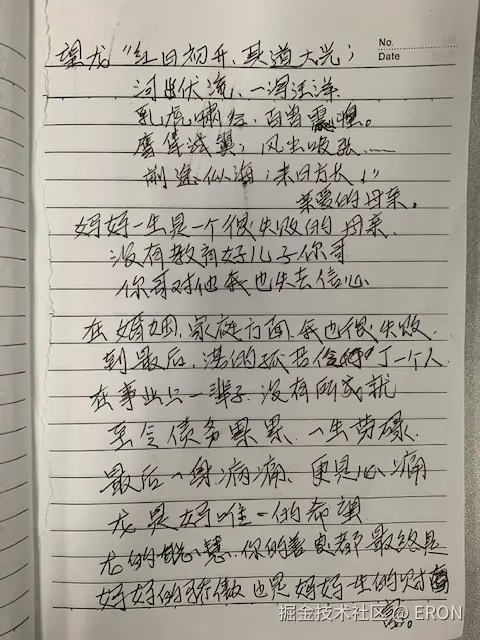 No.
Date
望龙“红日初升,其道大光;
河出伏流,一泻汪洋.
乳虎啸谷,百兽震惶。
鹰隼试翼,风尘吸张……
前途似海,来日方长!”
亲爱的母亲。
妈妈一生是一个很失败的母亲.
没有教育好儿子你哥
你哥对他我也失去信心
在婚姻.家庭方面.我也很失败.
到最后,落的孤苦伶仃了一个人
在事业只一辈子.没有所成就
至今债务累累.一生劳碌.
最后一身病痛.更是心痛
龙是妈唯一的希望
龙的 慧.你的善良都最终是
妈妈的骄傲也是妈妈一生的财富
掘金技术社区 @ ERON